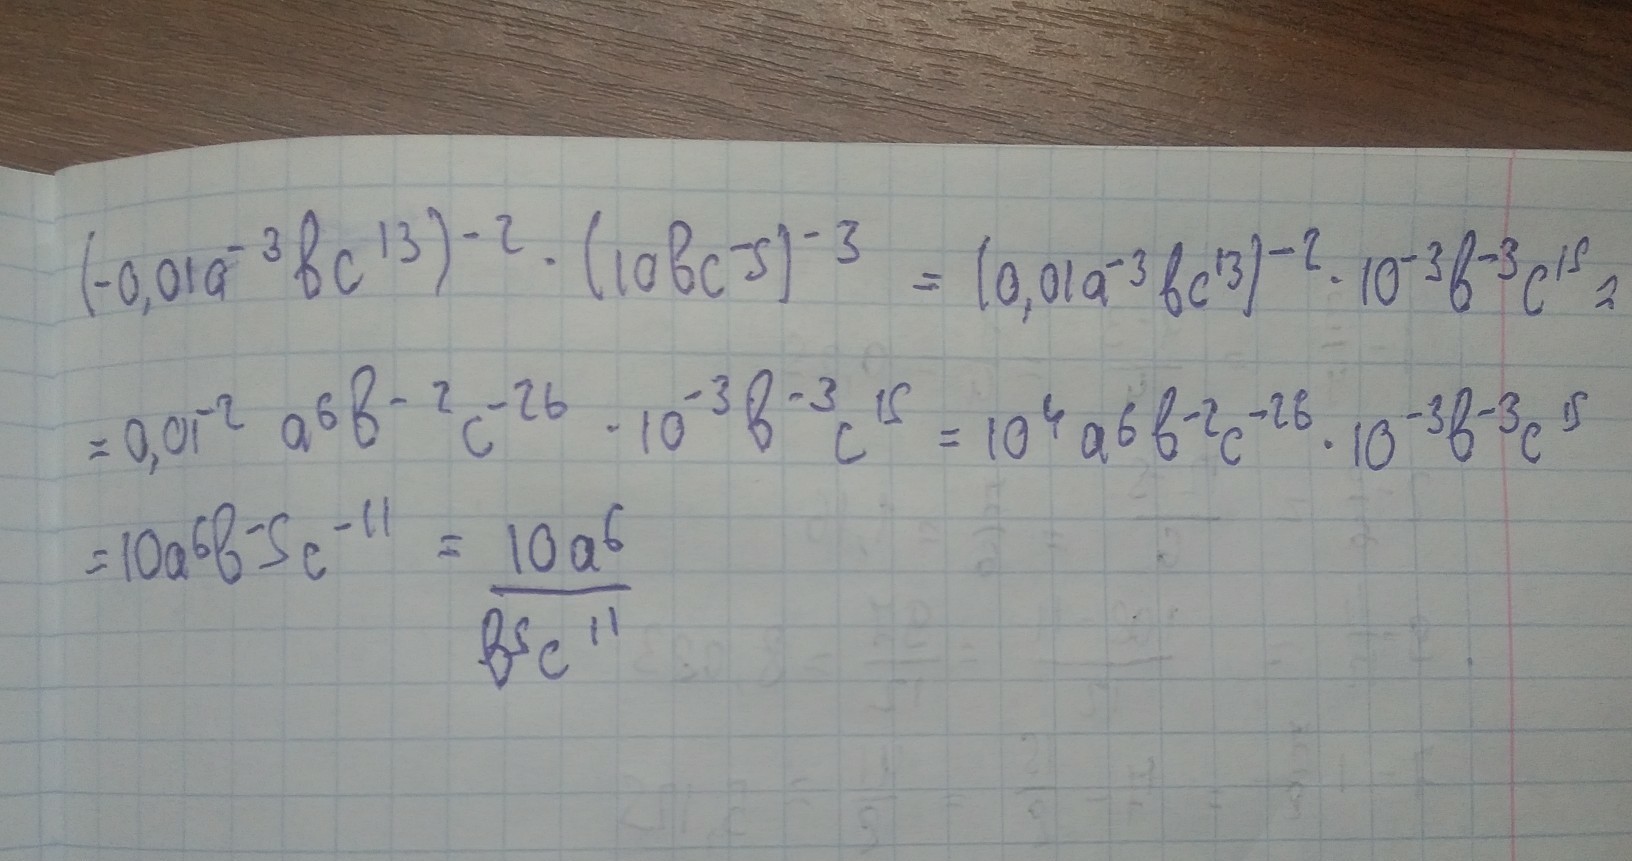 (-0,01a⁻³вc¹³)⁻² · (10вc⁻⁵)⁻³ = (0,01a⁻³вc¹³)⁻² · 10⁻³в⁻³c¹⁵ =
= 0,01⁻² a⁶в⁻²c⁻²⁶ · 10⁻³в⁻³c¹⁵ = 10⁴a⁶в⁻²c⁻²⁶ · 10⁻³в⁻³c¹⁵
= 10a⁶в⁻⁵c⁻¹¹ = 10a⁶
в⁵c¹¹